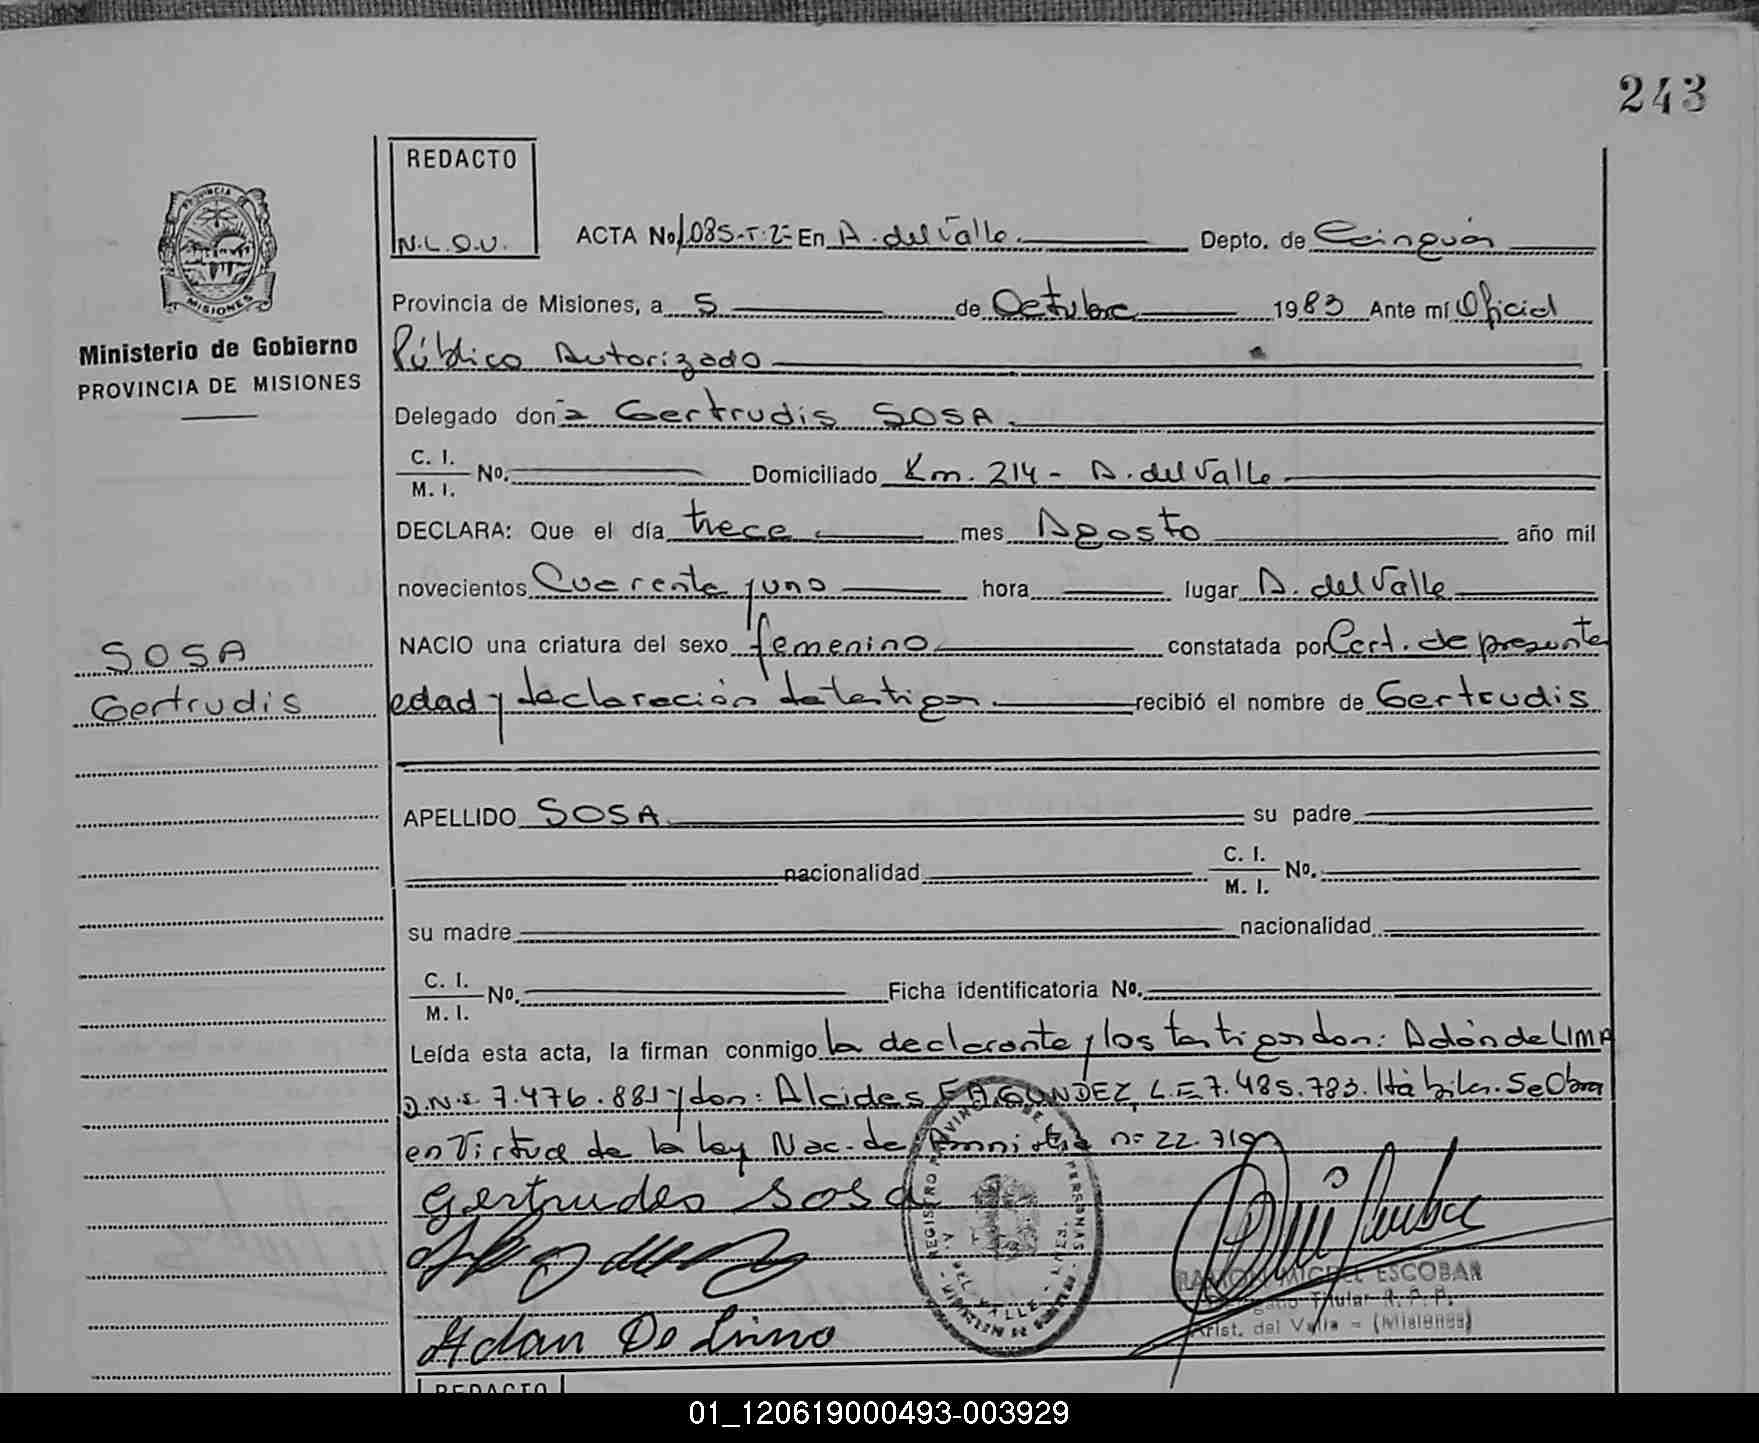 243
REDACTO
N.L.O.U.
ACTA No 1.085-T:2- En A. del Valle Depto. de Cainguás
Provincia de Misiones, a 5 de Octubre 1983 Ante mí Oficial
Ministerio de Gobierno
PROVINCIA DE MISIONES
Público Autorizado
Delegado don a Gertrudis SOSA.
C. I. M. I. No. Domiciliado Km. 214 - A. del Valle
DECLARA: Que el día trece mes Agosto año mil
novecientos Cuarenta y uno hora lugar A. del Valle
NACIO una criatura del sexo femenino constatada por Cert. de presunta
SOSA
Gertrudis
edad y declaración de testigos recibió el nombre de Gertrudis
APELLIDO SOSA su padre
nacionalidad C. I. M. I. No.
su madre nacionalidad
C. I. M. I. No. Ficha identificatoria No.
Leída esta acta, la firman conmigo la declarante y los testigos don: Adán de LIMA
D.N.I. 7.476.881 y don: Alcides FAGUNDEZ, L.E. 7.485.783. Hábiles. Se Obra
en Virtud de la ley Nac. de Amnistia nº 22.719
Gertrudes Sosa
Adan De Lima
REGISTRO PROVINCIAL DE LAS PERSONAS
RAMON MIGUEL ESCOBAR
Delegado Titular R. P. P.
Arist. del Valle - (Misiones)
REDACTO
01_120619000493-003929